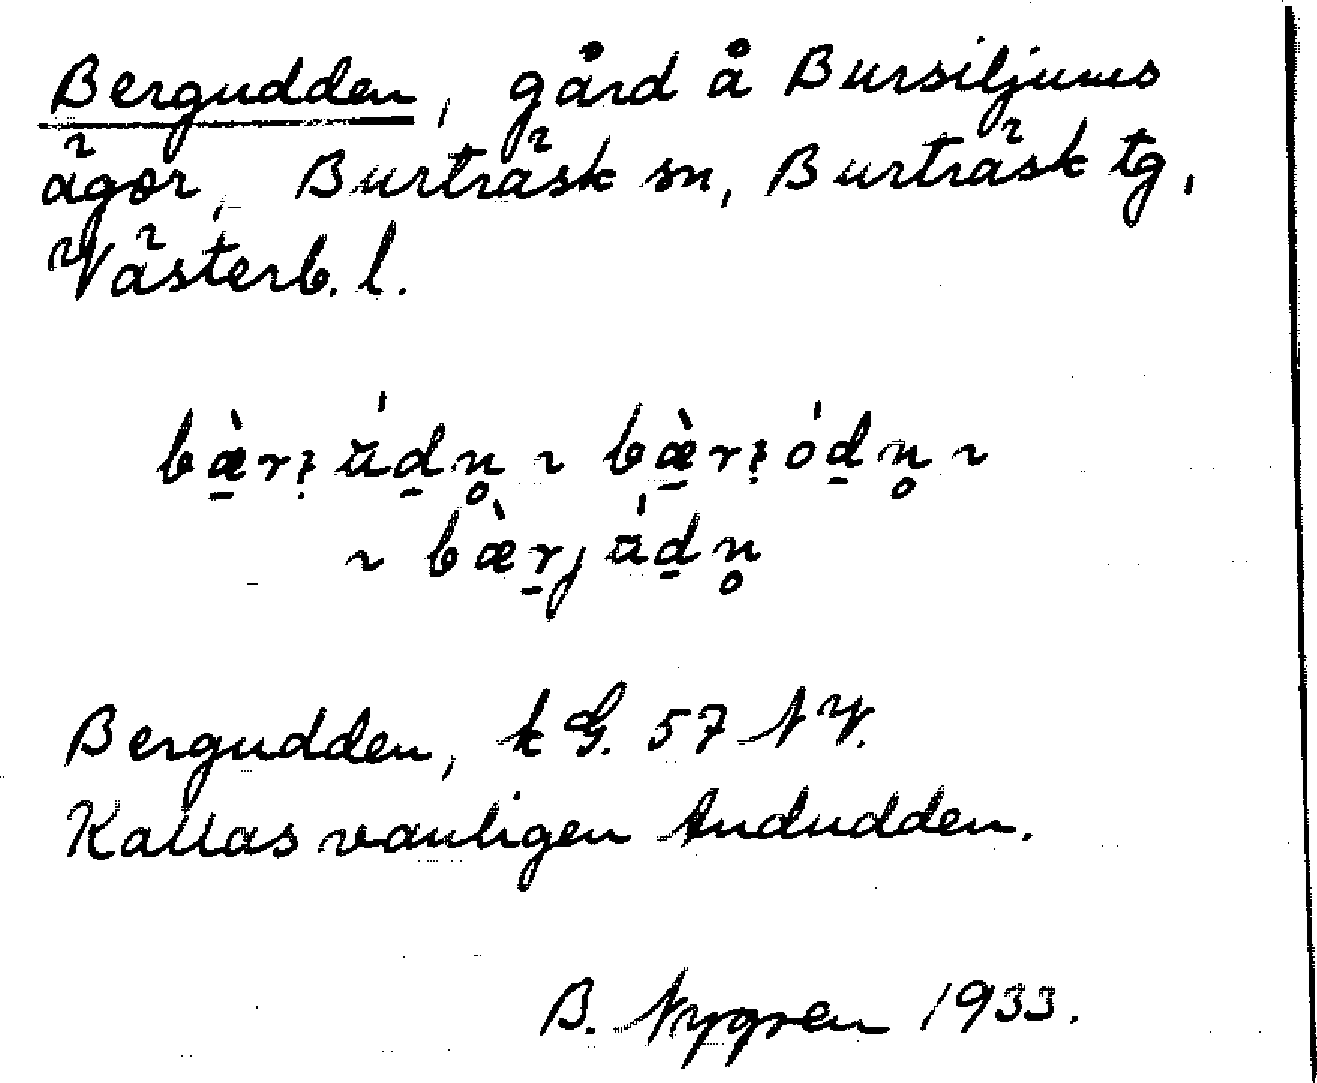 Bergudden, gård å Bursiljums
ägor, Burträsk sn, Burträsk tg,
Västerb. l.
Bergudden, k G. 57 NV.
Kallas vanligen Andudden.
B. Nygren 1933.